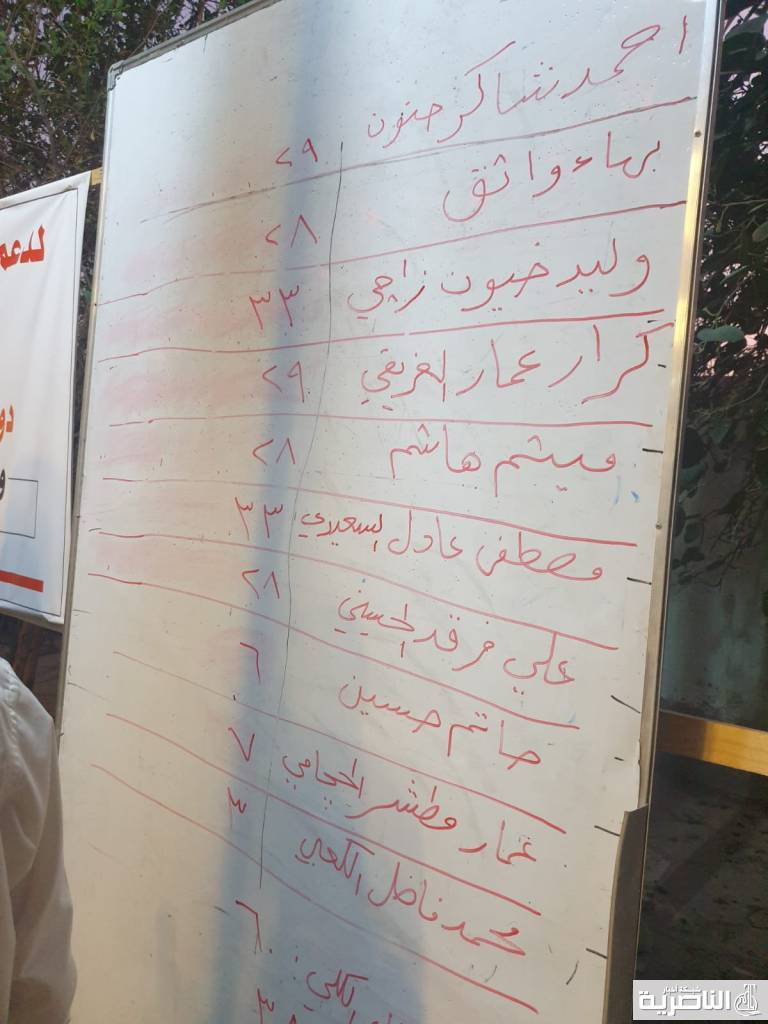 احمد شاكر حنون ٢٩
بهاء واثق ٢٨
وليد خيون زاجي ٣٣
كرار عمار الغريقي ٢٩
ميثم هاشم ٢٨
مصطفى عادل السعيدي ٣٣
علي فرقد الحسيني ٢٨
حاتم حسين ٦
عمار مطشر الحجامي ٧
محمد فاضل الكعبي ٣
الكلي: ٦٠
لدعم
دو
و
شبكة أخبار
الناصرية